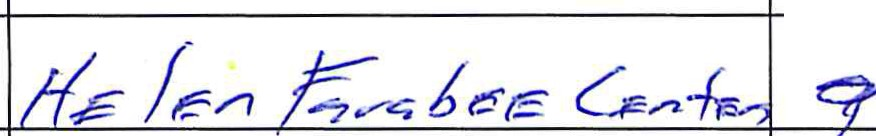 Helen Farabee Center 9